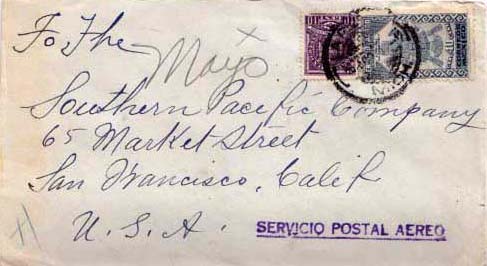 To The
Mayo
Southern Pacific Company
65 Market Street
San Francisco, Calif
U. S. A.
SERVICIO POSTAL AEREO